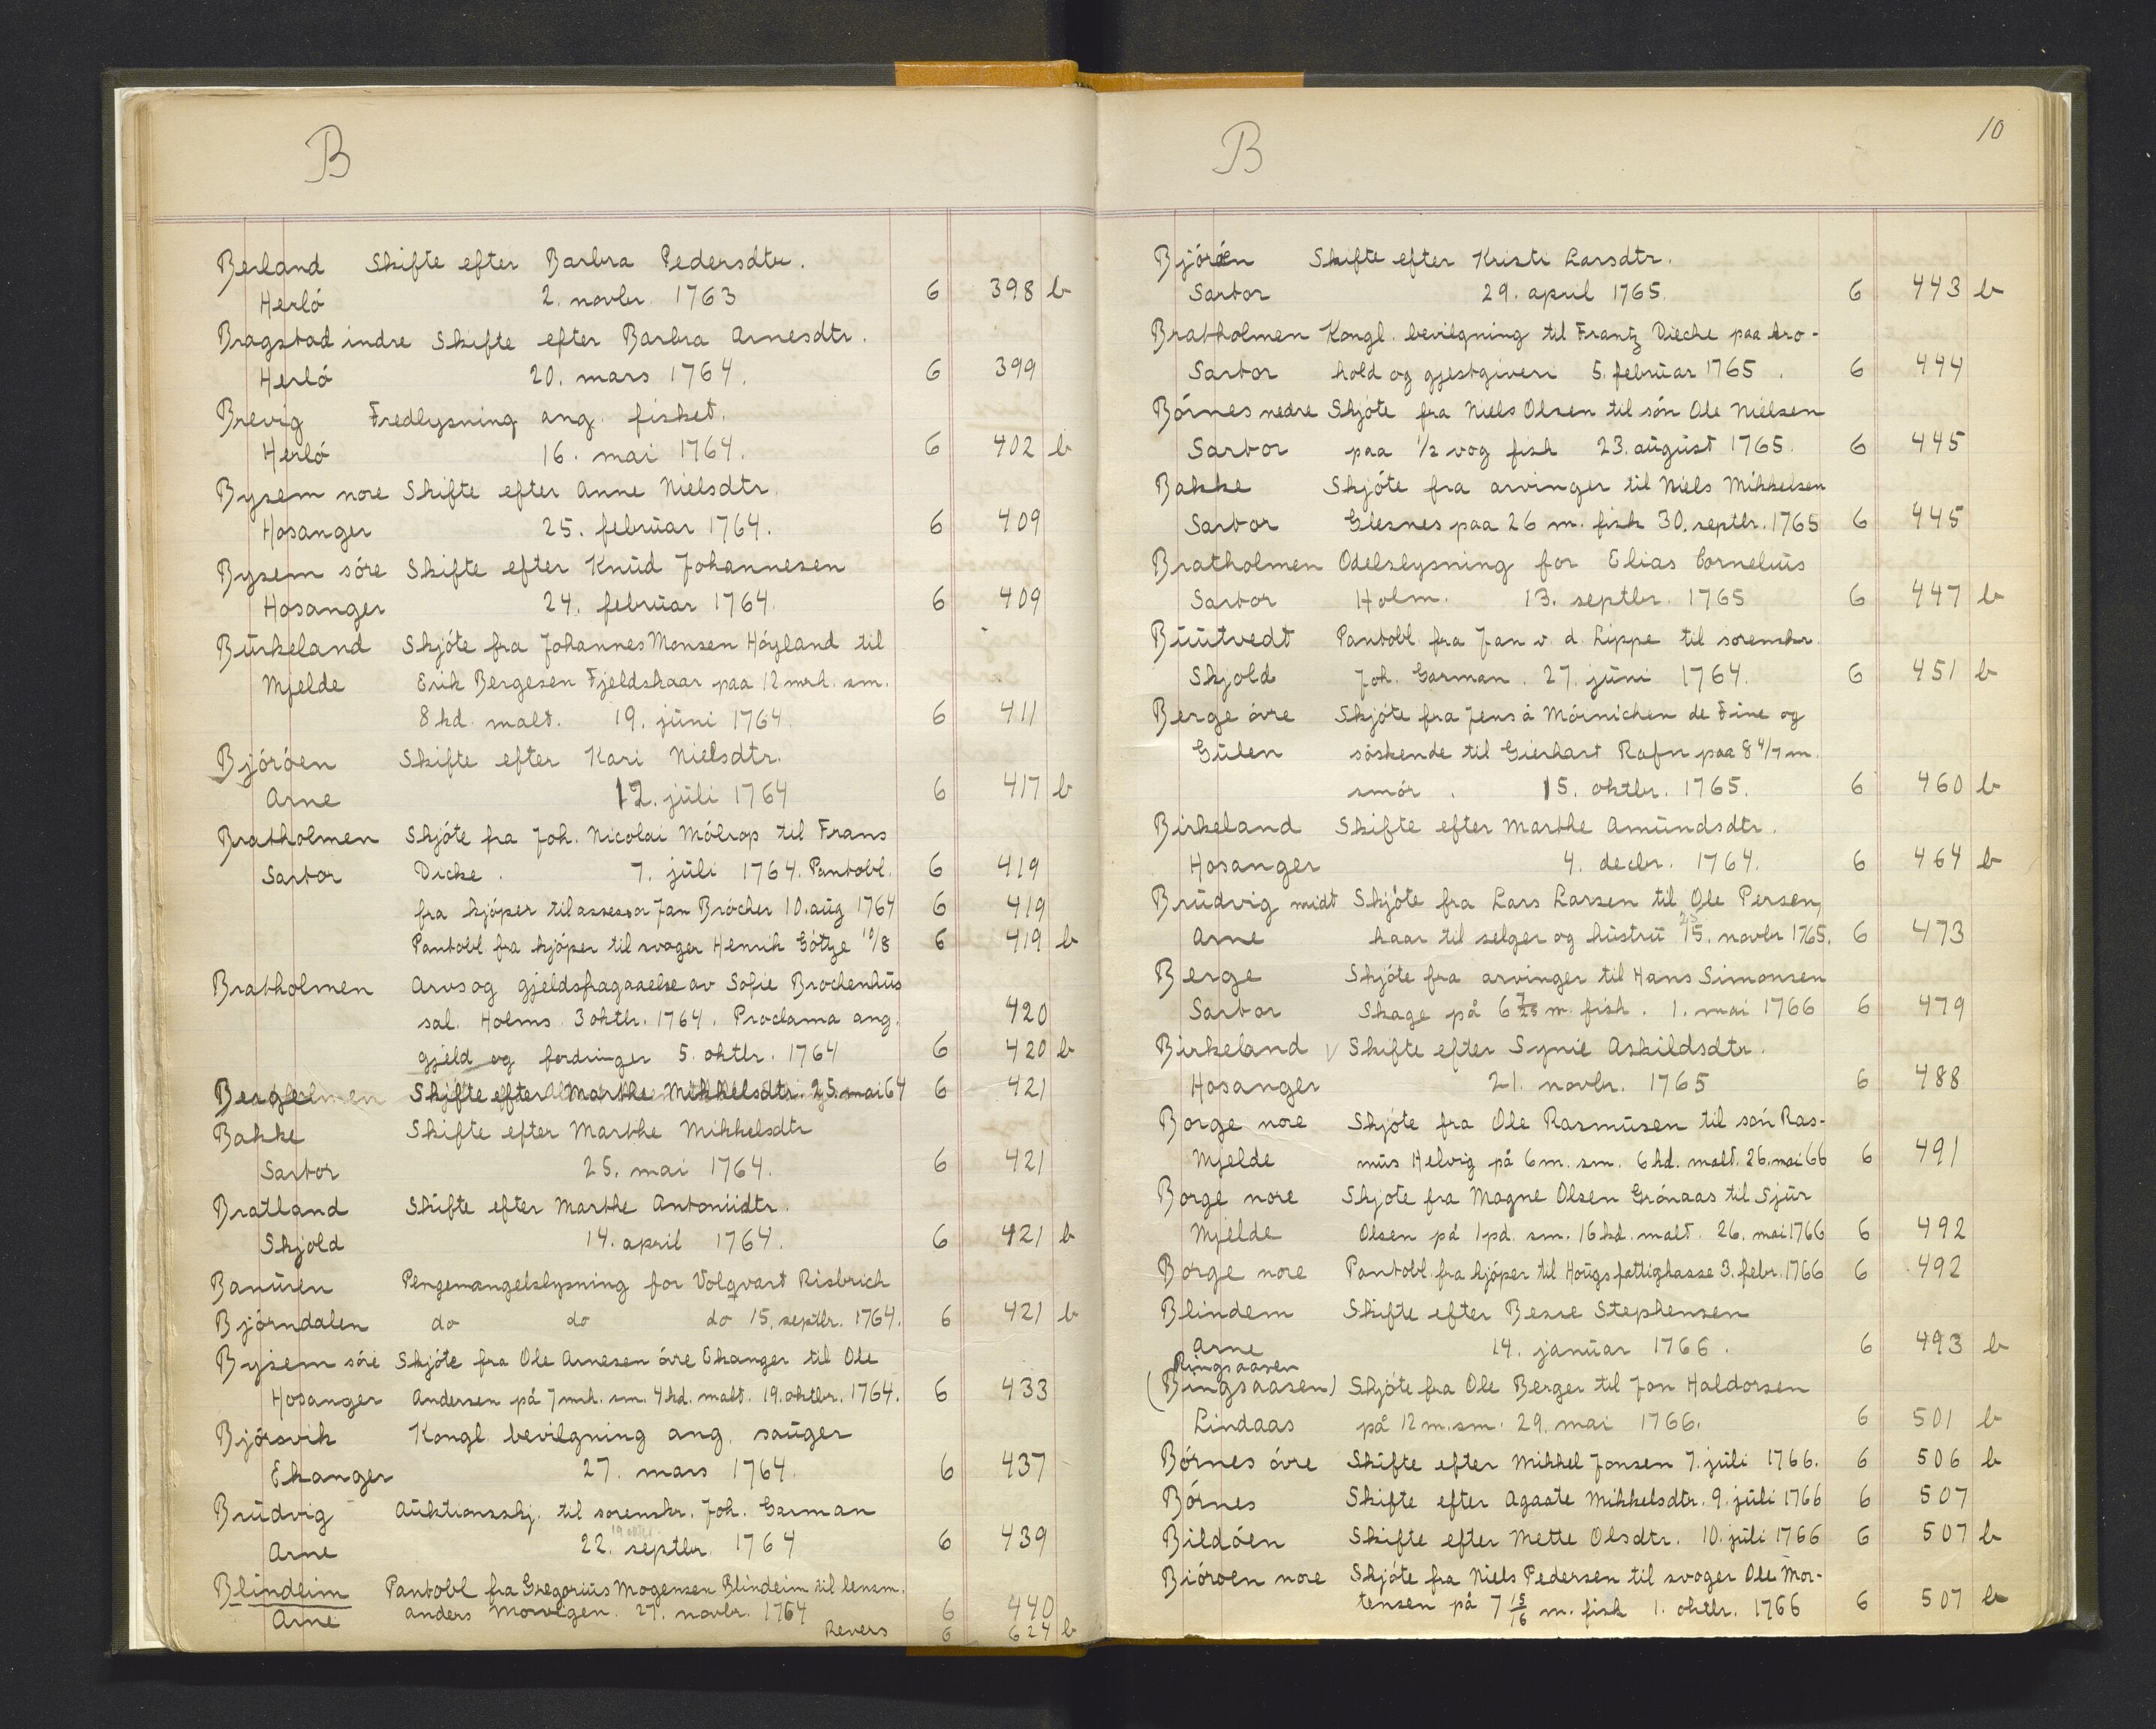 B
Berland Skifte efter Barbra Pedersdtr.
Herló 2. novbr. 1763 6 398 b
Bragstad indre Skifte efter Barbra Arnesdtr.
Herló 20. mars 1764. 6 399
Brevig Fredlysning ang. fisket.
Herló 16. mai 1764. 6 402 b
Bysem nore Skifte efter Anne Nielsdtr.
Hosanger 25. februar 1764. 6 409
Bysem sóre Skifte efter Knud Johannesen
Hosanger 24. februar 1764. 6 409
Burkeland Skjóte fra Johannes Monsen Hóyland til
Mjelde Erik Bergesen Fjeldskaar paa 12 mrk. sm.
8 hd. malt. 19. juni 1764. 6 411
Bjóróen Skifte efter Kari Nielsdtr.
Arne 12. juli 1764 6 417 b
Bratholmen Skjóte fra Joh. Nicolai Mólrop til Frans
Sartor Dicke. 7. juli 1764. Pantobl. 6 419
fra kjóper til assessor Jan Brócher 10. aug 1764 6 419
Pantobl fra kjóper til svoger Henrik Góttze 10/8 6 419 b
Bratholmen Arvs og gjeldsfragaaelse av Sofie Brochenhus
sal. Holms 3 oktbr. 1764. Proclama ang. 420
gjeld og fordringer 5. oktbr. 1764 6 420 b
Berge Skifte efter Marthe Mikkelsdtr. 25. mai 64 6 421
Bakke Skifte efter Marthe Mikkelsdtr
Sartor 25. mai 1764. 6 421
Bratland Skifte efter Marthe Antoniidtr.
Skjold 14. april 1764. 6 421 b
Banuren Pengemangelslysning for Volqvart Risbrich
Bjórndalen do do do 15. septbr. 1764. 6 421 b
Bysem sóre Skjóte fra Ole Arnesen óvre Ekanger til Ole
Hosanger Andersen på 7 mrk. sm. 4 hd. malt. 19. oktbr. 1764. 6 433
Bjórsvik Kongl. bevilgning ang. sauger
Ekanger 27. mars 1764. 6 437
Brudvig Auktionsskj. til sorenskr. Joh. Garman
Arne 22. septbr. 1764 6 439
Blindeim Pantobl fra Gregorius Mogensen Blindeim til lensm.
Arne Anders Morvigen. 27. novbr. 1764 6 440
Revers 6 624 b
B
10
Bjóróen Skifte efter Kristi Larsdtr.
Sartor 29. april 1765. 6 443 b
Bratholmen Kongl. bevilgning til Frantz Diecke paa kro-
Sartor hold og gjestgiveri 5. februar 1765. 6 444
Bórnes nedre Skjóte fra Niels Olsen til són Ole Nielsen
Sartor paa 1/2 vog fisk 23. august 1765. 6 445
Bakke Skjóte fra arvinger til Niels Mikkelsen
Sartor Glesnes paa 26 m. fisk 30. septbr. 1765 6 445
Bratholmen Odelslysning for Elias Cornelius
Sartor Holm. 13. septbr. 1765 6 447 b
Buutvedt Pantobl. fra Jan v. d. Lippe til sorenskr.
Skjold Joh. Garman. 27. juni 1764. 6 451 b
Berge óvre Skjóte fra Jens á Móinichen de Fine og
Gulen sóskende til Gierhart Rafn paa 8 4/7 m.
smór. 15. oktbr. 1765. 6 460 b
Birkeland Skifte efter Marthe Amundsdtr.
Hosanger 4. decbr. 1764. 6 464 b
Brudvig midt Skjóte fra Lars Larsen til Ole Persen,
Arne kaar til selger og hustru 15. novbr 1765. 6 473
Berge Skjóte fra arvinger til Hans Simonsen
Sartor Skage på 6 m. fisk. 1. mai 1766 6 479
Birkeland Skifte efter Synie Askildsdtr.
Hosanger 21. novbr. 1765 6 488
Borge nore Skjóte fra Ole Rasmusen til són Ras-
Mjelde mus Helvig på 6 m. sm. 6 hd. malt. 26. mai 66 6 491
Borge nore Skjote fra Magne Olsen Grónaas til Sjur
Mjelde Olsen på 1 pd. sm. 16 hd. malt. 26. mai 1766 6 492
Borge nore Pantobl. fra kjóper til Hougs fattigkasse 3. febr. 1766 6 492
Blindem Skifte efter Besse Stephensen
Arne 14. januar 1766. 6 493 b
Ringsaasen
(Bingsaasen) Skjóte fra Ole Berger til Jon Haldorsen
Lindaas på 12 m. sm. 29. mai 1766. 6 501 b
Bórnes óvre Skifte efter Mikkel Jonsen 7. juli 1766. 6 506 b
Bórnes Skifte efter Agaate Mikkelsdtr. 9. juli 1766 6 507
Bildóen Skifte efter Mette Olsdtr. 10. juli 1766 6 507 b
Bióroen nore Skjóte fra Niels Pedersen til svoger Ole Mor-
tensen på 7 m. fisk 1. oktbr. 1766 6 507 b